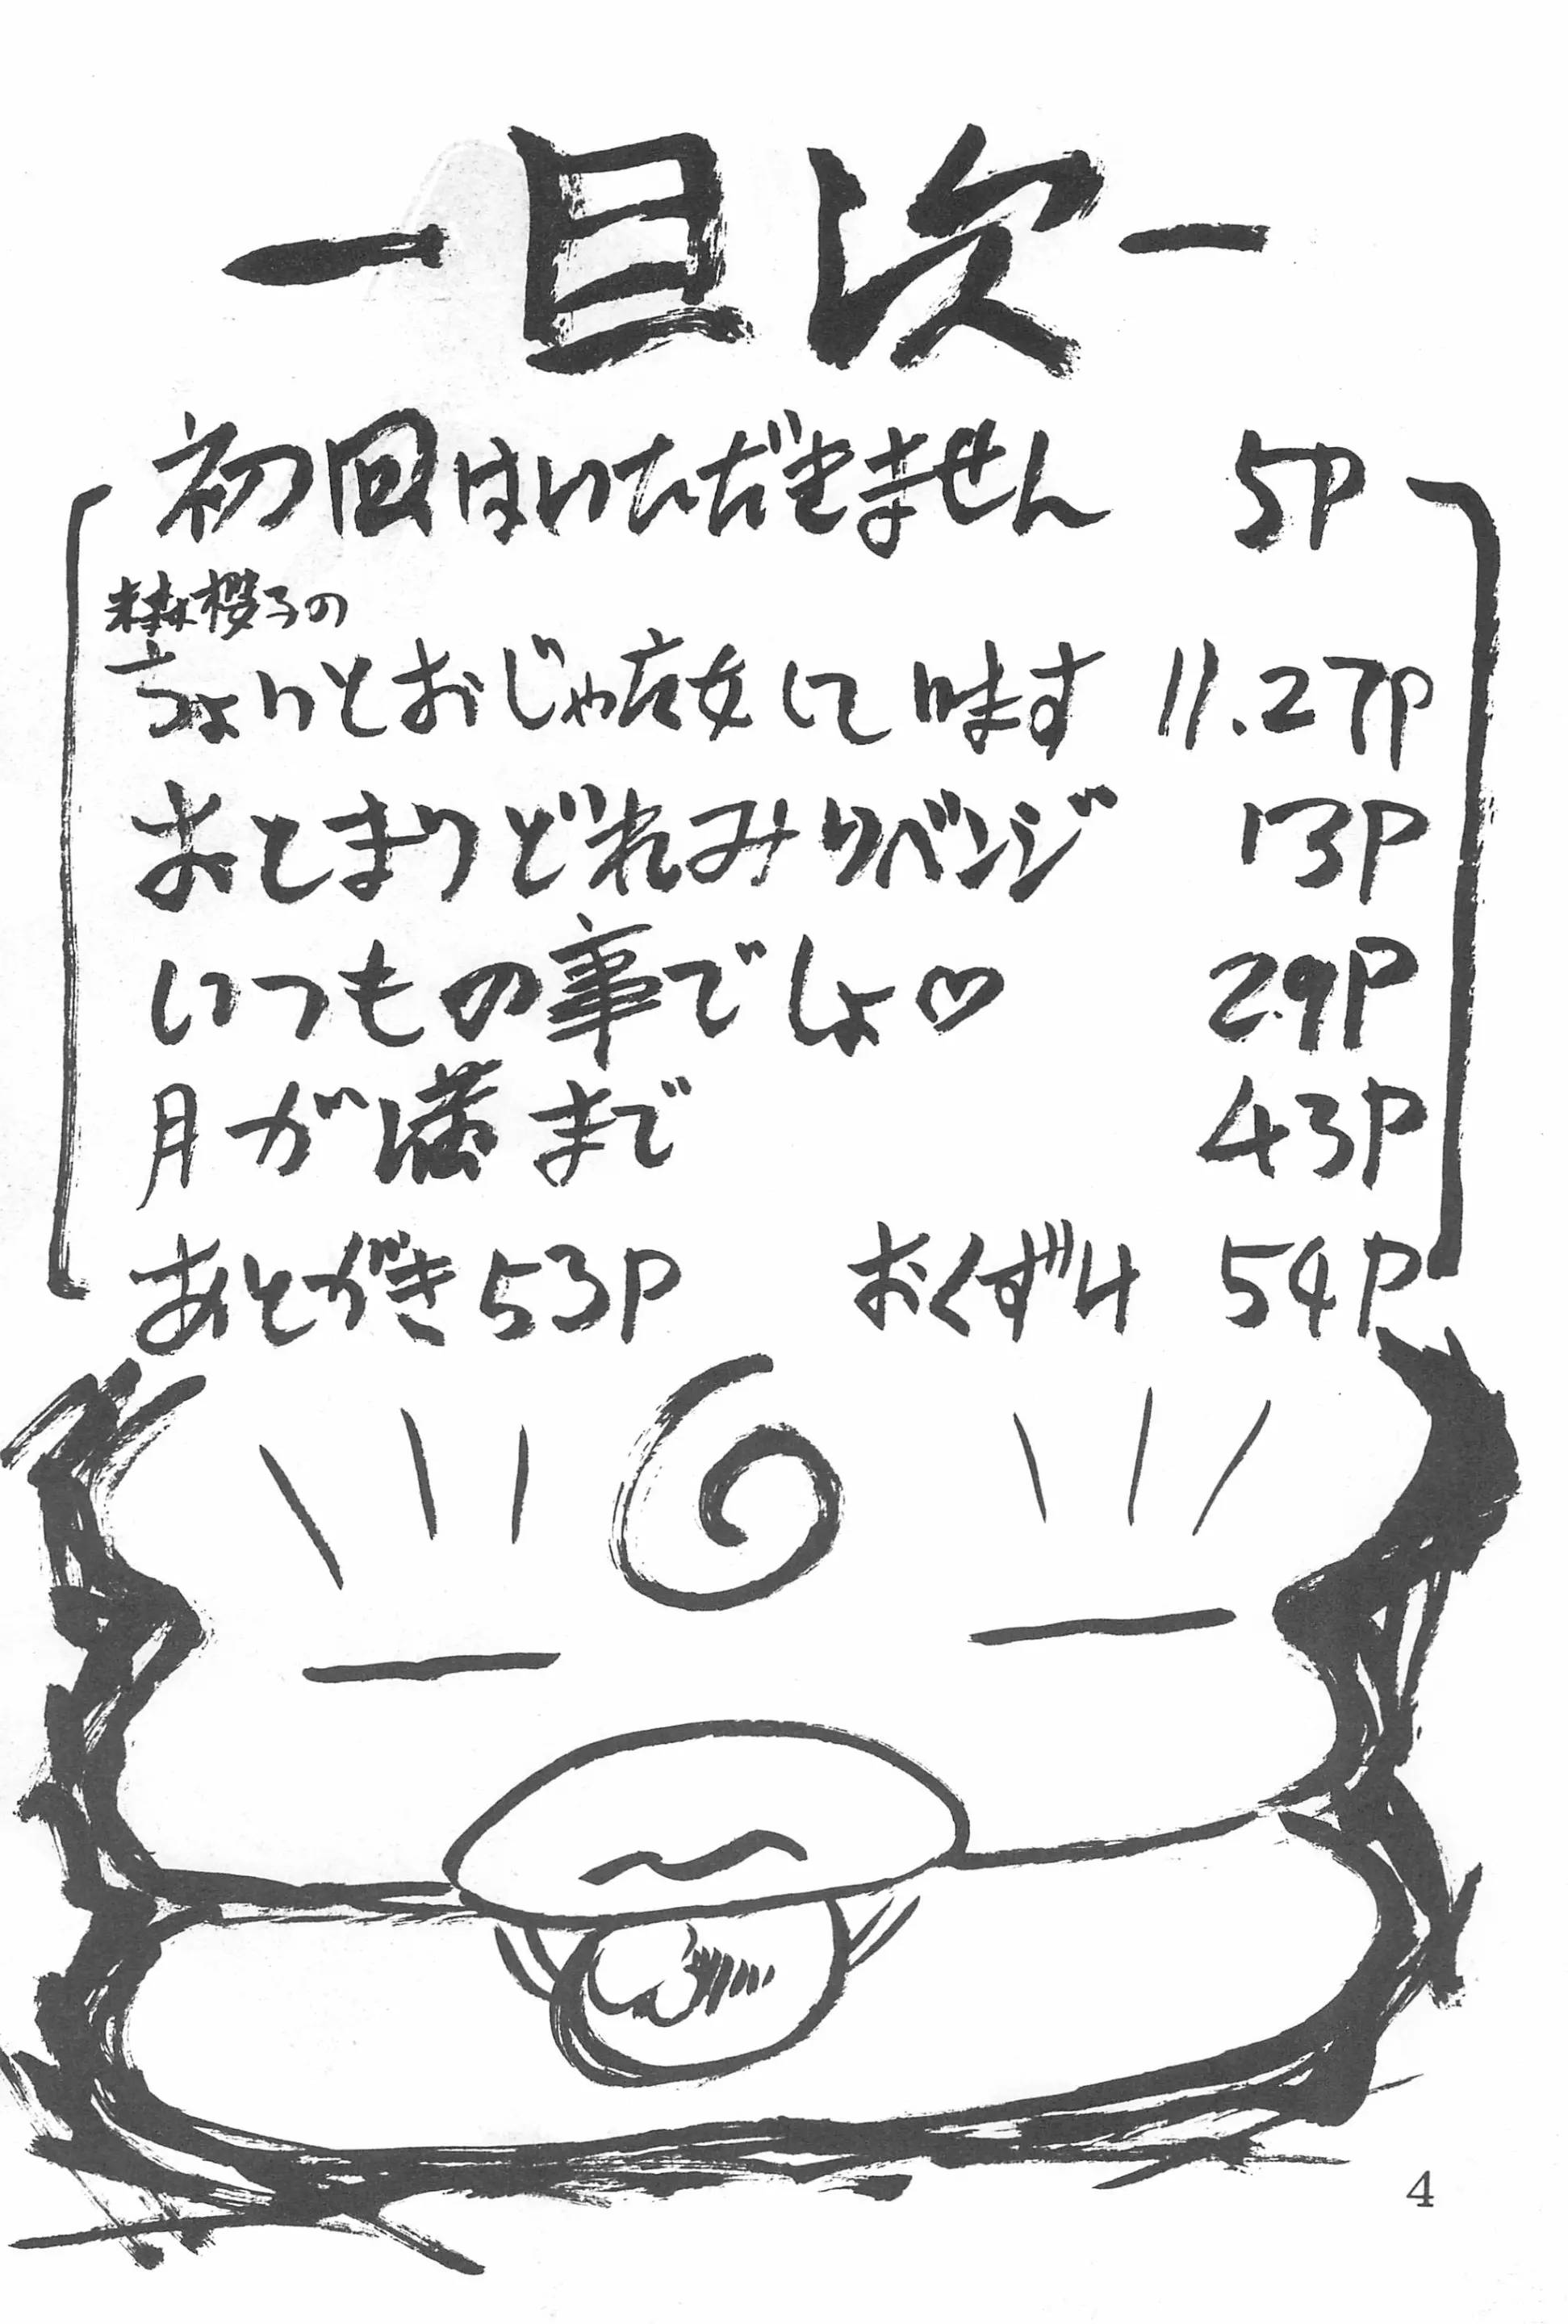 －目次－
初回はいただきません 5P
桜子の
ちょいとおじゃ女して味ます 11.27P
おとまりどれみリベンジ 13P
いつもの事でしょ♡ 29P
月が満まで 43P
あとがき 53P おくずけ 54P
4